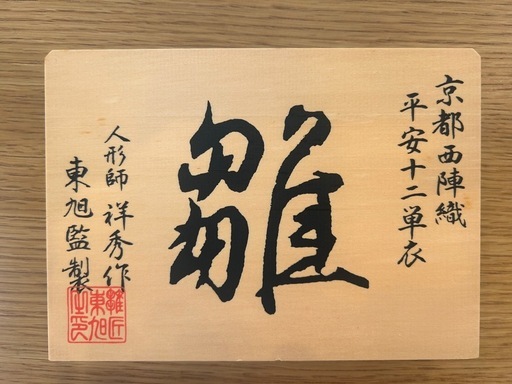 京都西陣織
平安十二単衣
雛
人形師 祥秀作
東旭監製
雛匠
東旭
之印